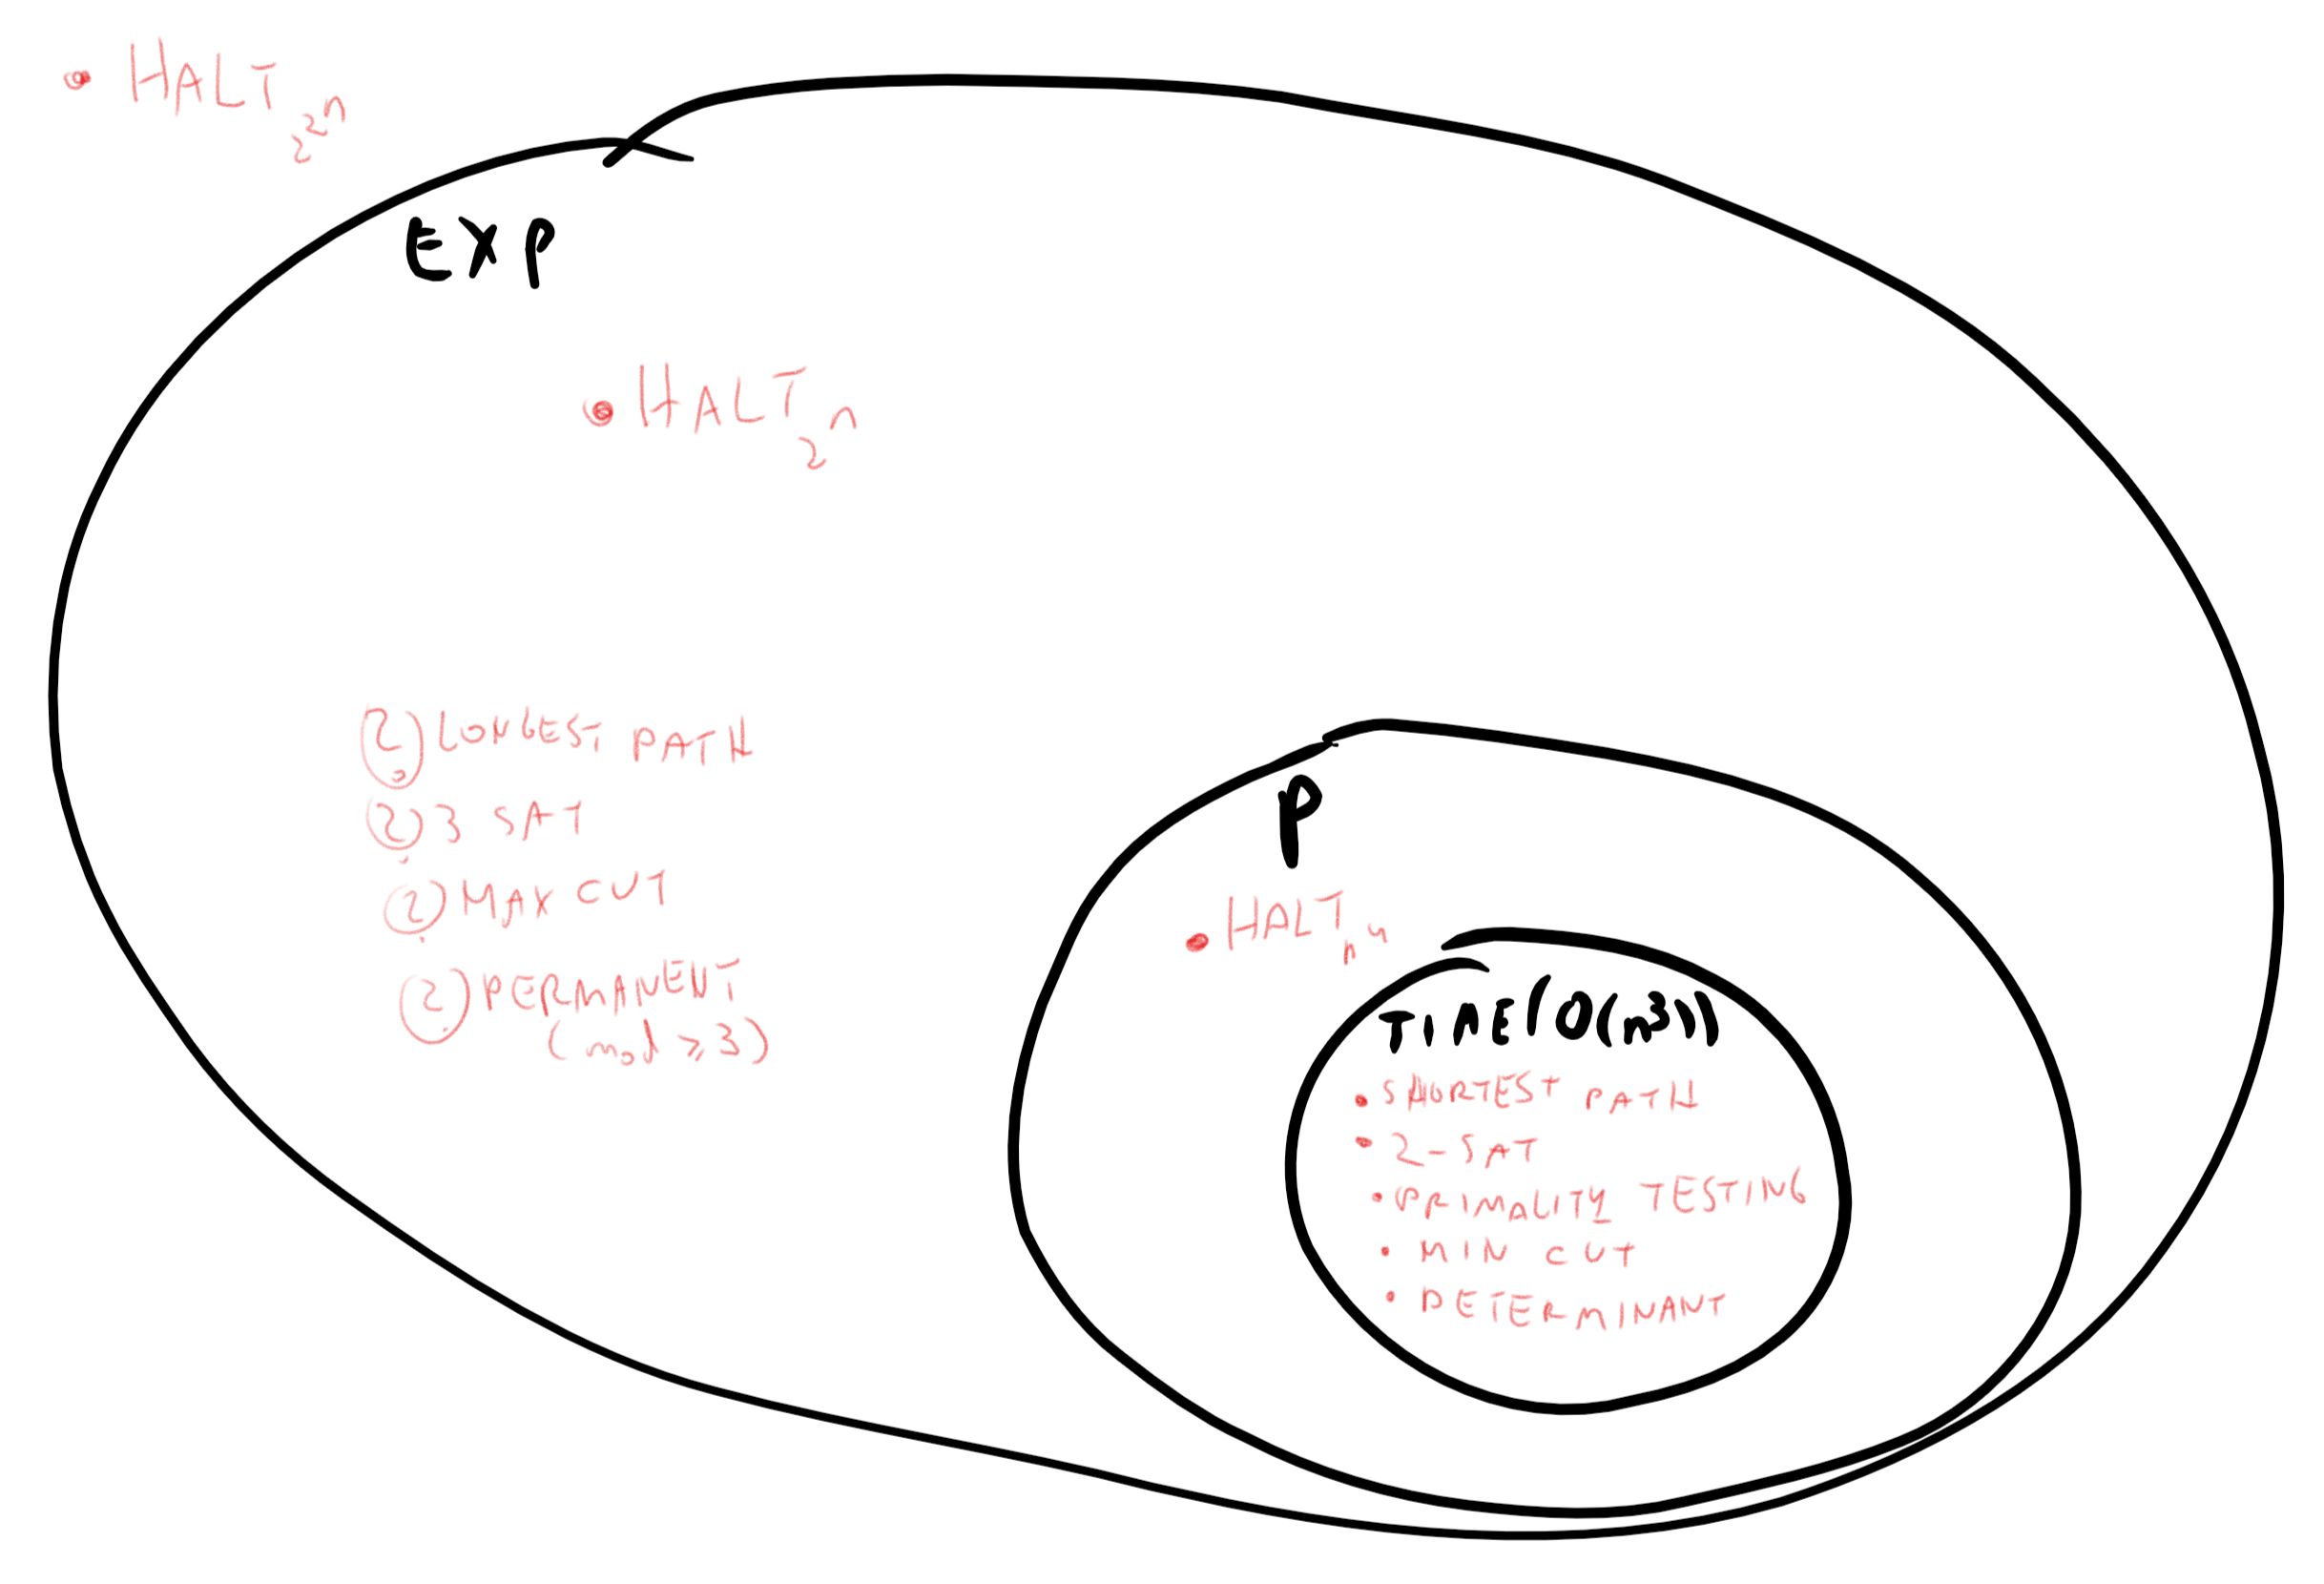 • HALT 2^2^n
EXP
• HALT 2^n
? LONGEST PATH
? 3 SAT
? MAX CUT
? PERMANENT
(mod ≥3)
P
• HALT n^4
TIME(O(n^3))
• SHORTEST PATH
• 2-SAT
• PRIMALITY TESTING
• MIN CUT
• DETERMINANT